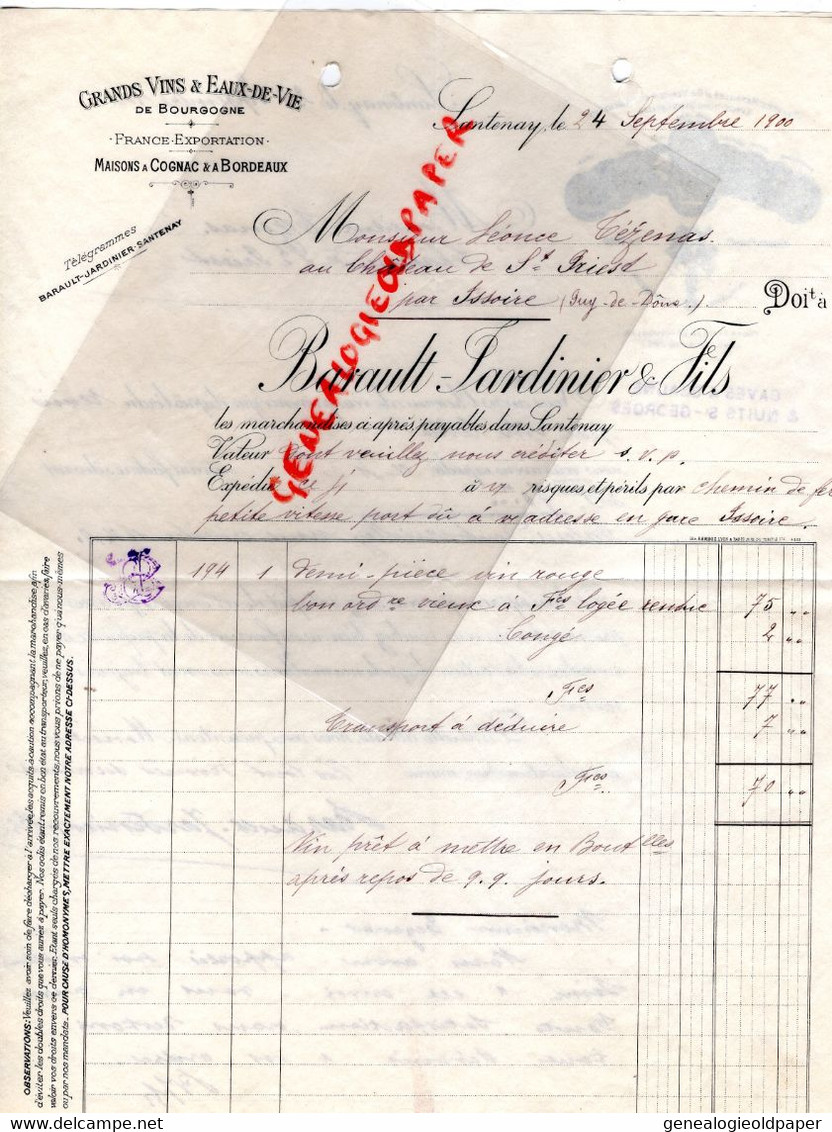 GRANDS VINS & EAUX-DE-VIE
DE BOURGOGNE
FRANCE-EXPORTATION
MAISONS A COGNAC & A BORDEAUX
Télégrammes
BARAULT-JARDINIER-SANTENAY
Santenay, le 24 Septembre 1900
Monsieur Léonce Tézenas
au Château de St Priest
par Issoire (Puy-de-Dôme.)
Doit à
Barault-Jardinier & Fils
les marchandises ci après, payables dans Santenay
Valeur dont veuillez nous créditer s.v.p.
Expédié à vos risques, et périls par chemin de fer
petite vitesse port dû à v/ adresse en gare Issoire.
194 1 demi-pièce vin rouge
bon ordre vieux à Fcs logée rendue 75 „
Congé 2 „
Fcs 77 „
Transport à déduire 7 „
Fcs 70 „
Vin prêt à mettre en Boutlles
après repos de q.q. jours.
OBSERVATIONS: Veuillez avoir soin de faire décharger à l'arrivée, les acquits à caution accompagnant la marchandise afin
d'éviter les doubles droits que vous auriez à payer. Nos colis étant remis en bon état au transporteur, veuillez, en cas d'avaries, faire
valoir vos droits envers ce dernier. Etant seuls chargés de nos recouvrements, nous vous prions de ne payer qu'à nous-mêmes
ou par nos mandats. POUR CAUSE D'HOMONYMES, METTRE EXACTEMENT NOTRE ADRESSE CI-DESSUS.
GENEALOGIEOLDPAPER
genealogieoldpaper